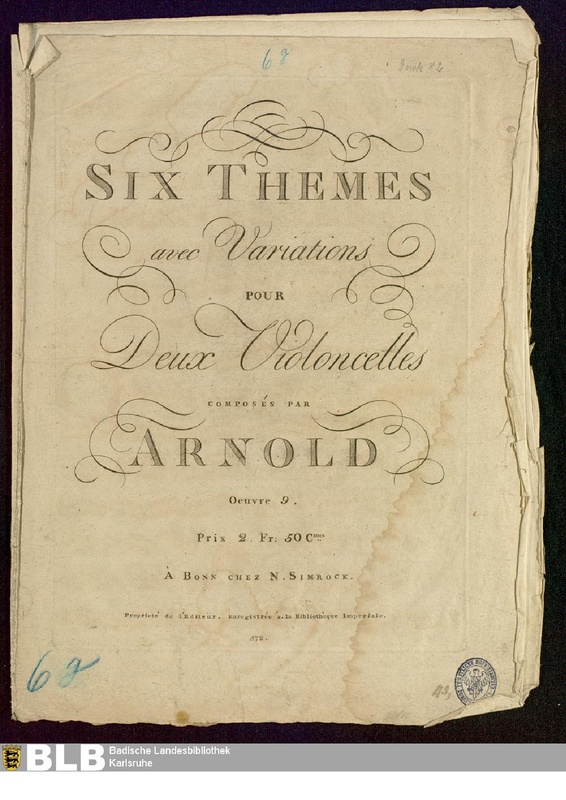 6 g
SIX THEMES
avec Variations
POUR
Deux Violoncelles
COMPOSÉS PAR
ARNOLD
Oeuvre 9.
Prix 2. Fr: 50 Cmes
À BONN CHEZ N. SIMROCK.
Propriété de l'Editeur. Enregistrée à la Bibliothèque Impériale.
872.
6 g
BLB
Badische Landesbibliothek
Karlsruhe